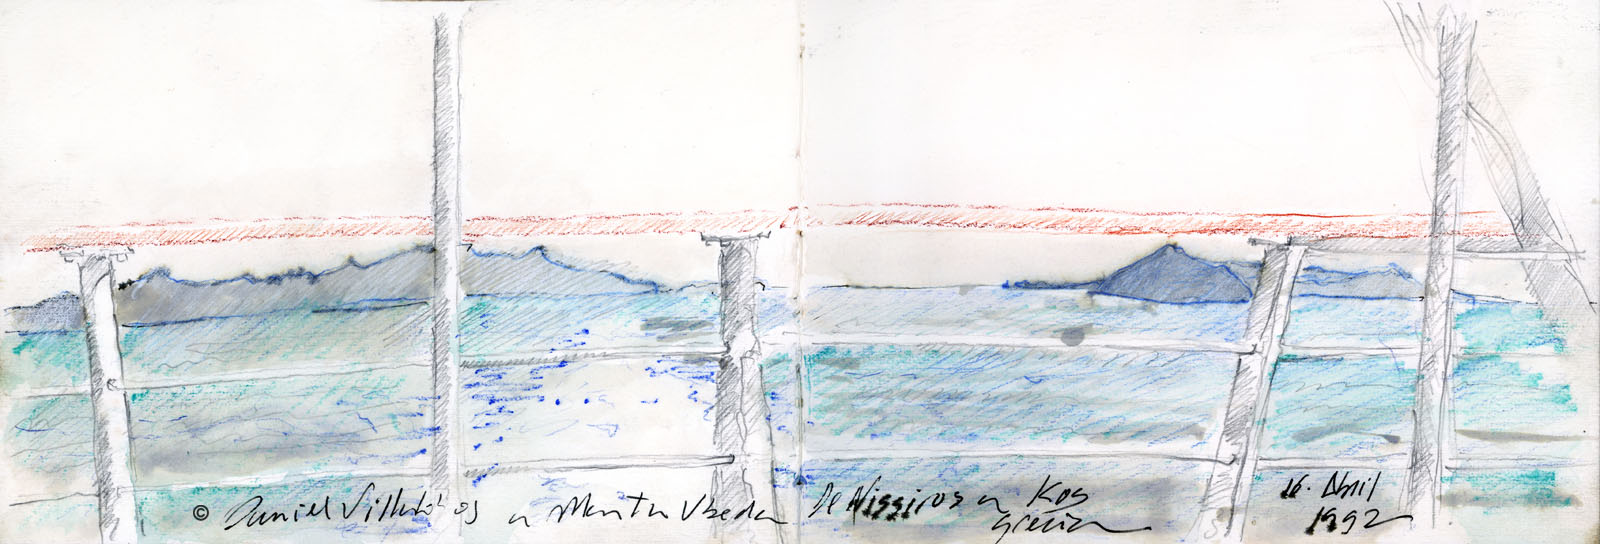 © Daniel Villalobos a Marta Ubeda De Nissiros a Kos
Grecia
16. Abril
1992